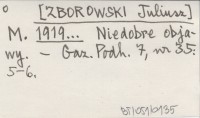 [ZBOROWSKI Juliusz]
M. 1919... Niedobre obja-
wy. – Gaz. Podh. 7, nr 35:
5-6.
BT/051/0135